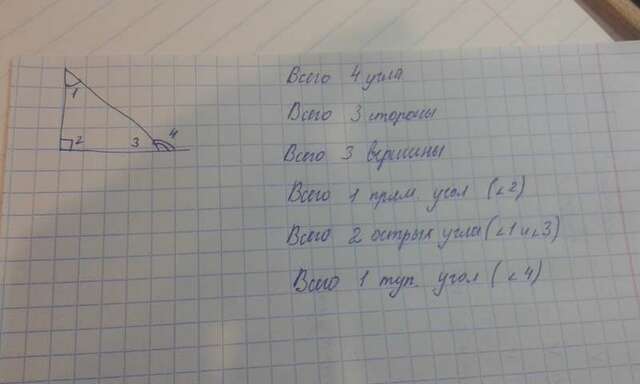 1
2
3
4
Всего 4 угла
Всего 3 стороны
Всего 3 вершины
Всего 1 прям. угол (∠2)
Всего 2 острых угла (∠1 и ∠3)
Всего 1 туп. угол (∠4)